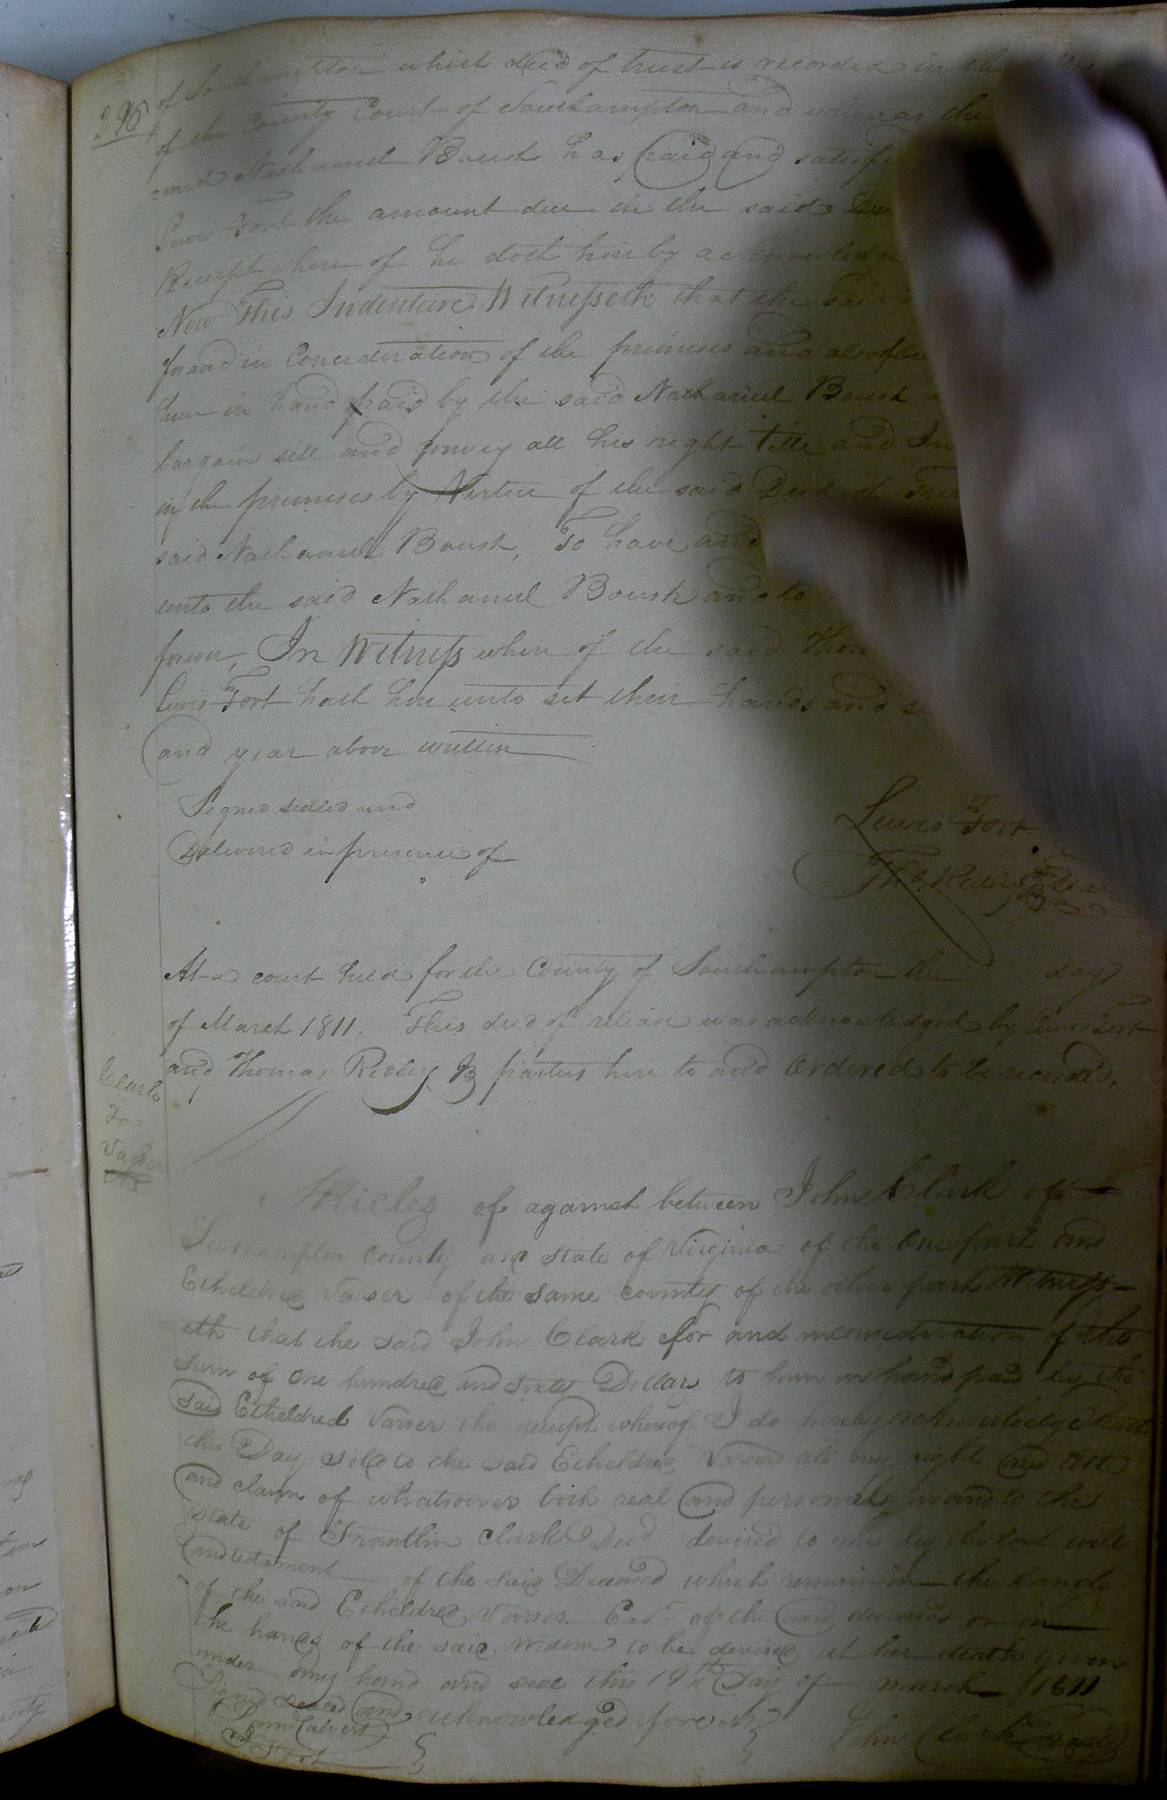 296
of Southampton which deed of trust is recorded in the
of the County Court of Southampton and whereas the
=med Nathaniel Boush has paid and satisf
Lewis Fort the amount due in the said
Receipt where of he doth hereby acknowledge
Now This Indenture Witnesseth that the said
for and in Concideration of the premises and also of
him in hand paid by the said Nathaniel Boush
bargain sell and convey all his right title and In
in the premises by Virtue of the said Deed of Tru
said Nathaniel Boush, To have and
unto the said Nathaniel Boush and to
forever, In Witness where of the said Thom
Lewis Fort hath here unto set their hands and s
and year above written
Signed sealed and
Delivered in presence of
Lewis Fort
Tho. Ridley Seal
At a court held for the County of Southampton the day
of March 1811. This deed of release was acknowledged by Lewis Fort
and Thomas Ridley parties here to and Ordered to be recorded,
Clark
To
Vaser
Articles of against between John Clark of
Southampton County and State of Virginia of the One part and
Etheldred Vaser of the Same county of the other part Witness-
eth that the said John Clark for and in consideration of the
sum of One hundred and sixty Dollars to him in hand paid by the
said Etheldred Vasser the receipt whereof I do hereby acknowledge I have
this Day sold to the said Etheldred Vasser all my right and title
and claim of whatsoever both real and personal in and to the
State of Franklin Clark Decd devised to me by the last will
and testament of the said Deceased which remain in the hands
of the said Etheldred Vasser Exr of the said deceased or in
the hands of the said widow to be devised at her death given
under my hand and seal this 19th Day of march 1811
Signed sealed and acknowledged
Calvert
John Clark seal